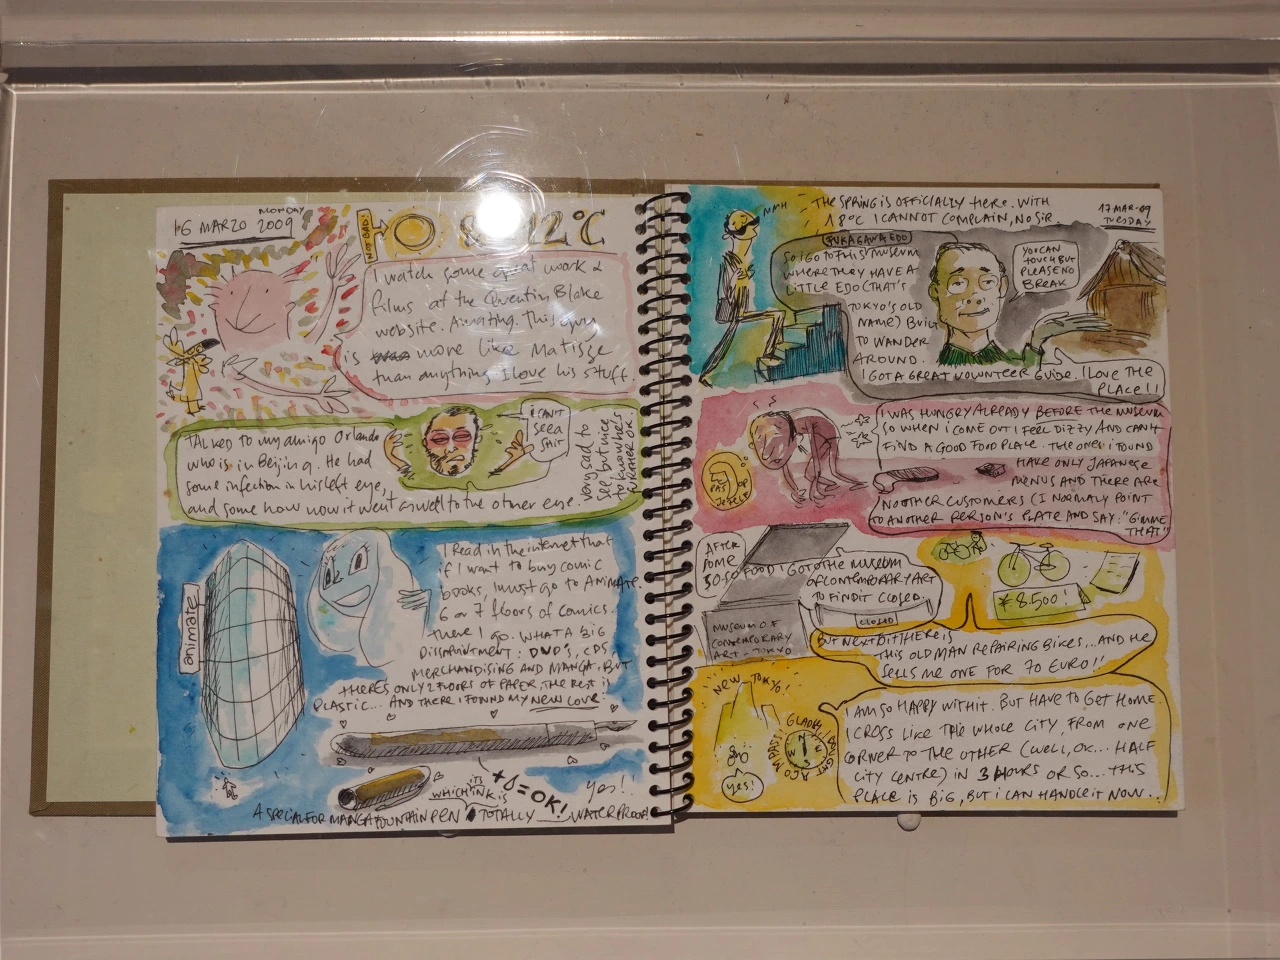 MONDAY
16 MARZO 2009
NOT BAD!
12°C
I watch some great work &
films at the Quentin Blake
website. Amazing. This guy
is more like Matisse
than anything. I love his stuff.
TALKED TO my amigo Orlando
who is in Beijing. He had
some infection in his left eye,
and some how now it went as well to the other eye.
I CAN'T
SEE A
SHIT
very sad to
see, but nice
to know he's
RATHER OK
animate
I Read in the internet that
if I want to buy comic
books, I must go to ANIMATE.
6 or 7 floors of comics.
There I go. WHAT A BIG
DISAPPOINTMENT: DVD'S, CDS,
MERCHANDISING AND MANGA. BUT
THERE'S ONLY 2 FLOORS OF PAPER, THE REST IS
PLASTIC... AND THERE I FOUND MY NEW LOVE.
+ = OK!
yes!!
A SPECIAL FOR MANGA FOUNTAIN PEN
ITS
WHICH INK IS
TOTALLY WATERPROOF!
MMH
THE SPRING IS OFFICIALLY HERE. WITH
18°C I CANNOT COMPLAIN, NO SIR.
17 MAR-09
TUESDAY
FUKAGAWA EDO
SO I GO TO THIS MUSEUM
WHERE THEY HAVE A
LITTLE EDO (THAT'S
TOKYO'S OLD
NAME) BUILT
TO WANDER
AROUND.
I GOT A GREAT VOLUNTEER GUIDE. I LOVE THE
PLACE!!
YOU CAN
TOUCH BUT
PLEASE NO
BREAK
I WAS HUNGRY ALREADY BEFORE THE MUSEUM
SO WHEN I COME OUT I FEEL DIZZY AND CAN'T
FIND A GOOD FOOD PLACE. THE ONE I FOUND
HAVE ONLY JAPANESE
MENUS AND THERE ARE
NO OTHER CUSTOMERS (I NORMALY POINT
TO ANOTHER PERSON'S PLATE AND SAY: "GIMME
THAT"
PAS OP
JEZELF
AFTER
SOME
SO-SO FOOD I GOT TO THE MUSEUM
OF CONTEMPORARY ART
TO FIND IT CLOSED.
CLOSED
MUSEUM OF
CONTEMPORARY
ART - TOKYO
¥ 8.500!
BUT NEXT BIT THERE IS
THIS OLD MAN REPAIRING BIKES... AND HE
SELLS ME ONE FOR 70 EURO!!
NEW TOKYO!
yes!
GLADLY I BOUGHT A COMPASS!
N
E
S
W
I AM SO HAPPY WITH IT. BUT HAVE TO GET HOME.
I CROSS LIKE THE WHOLE CITY, FROM ONE
CORNER TO THE OTHER (WELL, OK... HALF
CITY CENTRE) IN 3 HOURS OR SO... THIS
PLACE IS BIG, BUT I CAN HANDLE IT NOW...